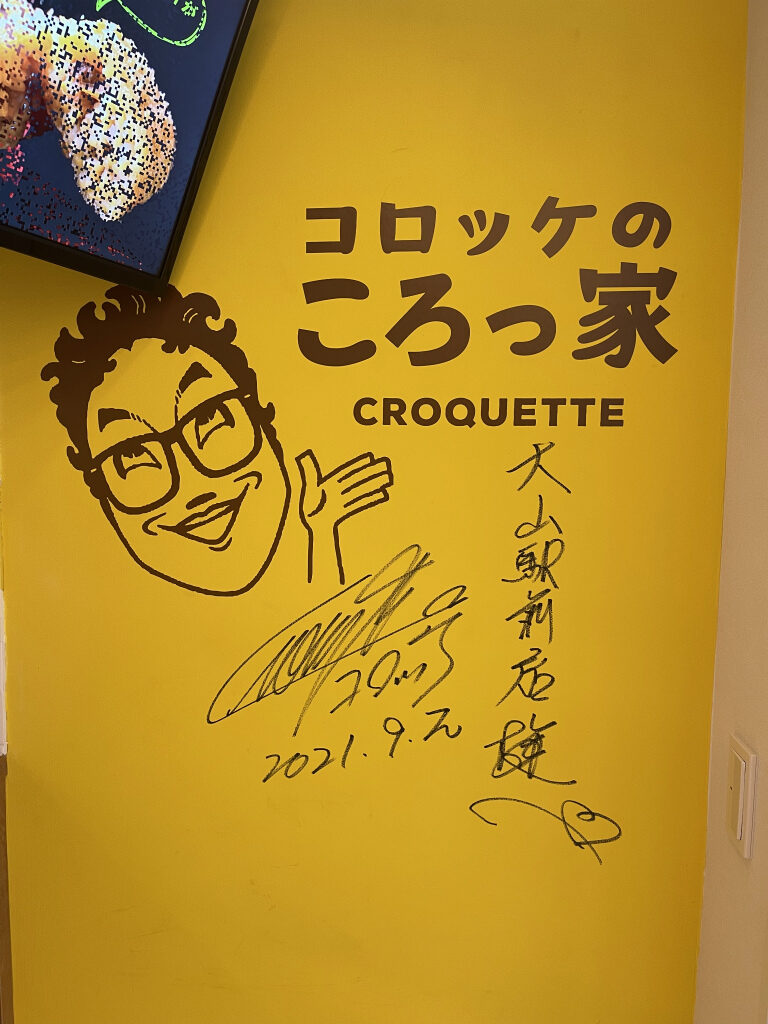 が
コロッケの
ころっ家
CROQUETTE
大山駅前店様
コロッケ
2021.9.